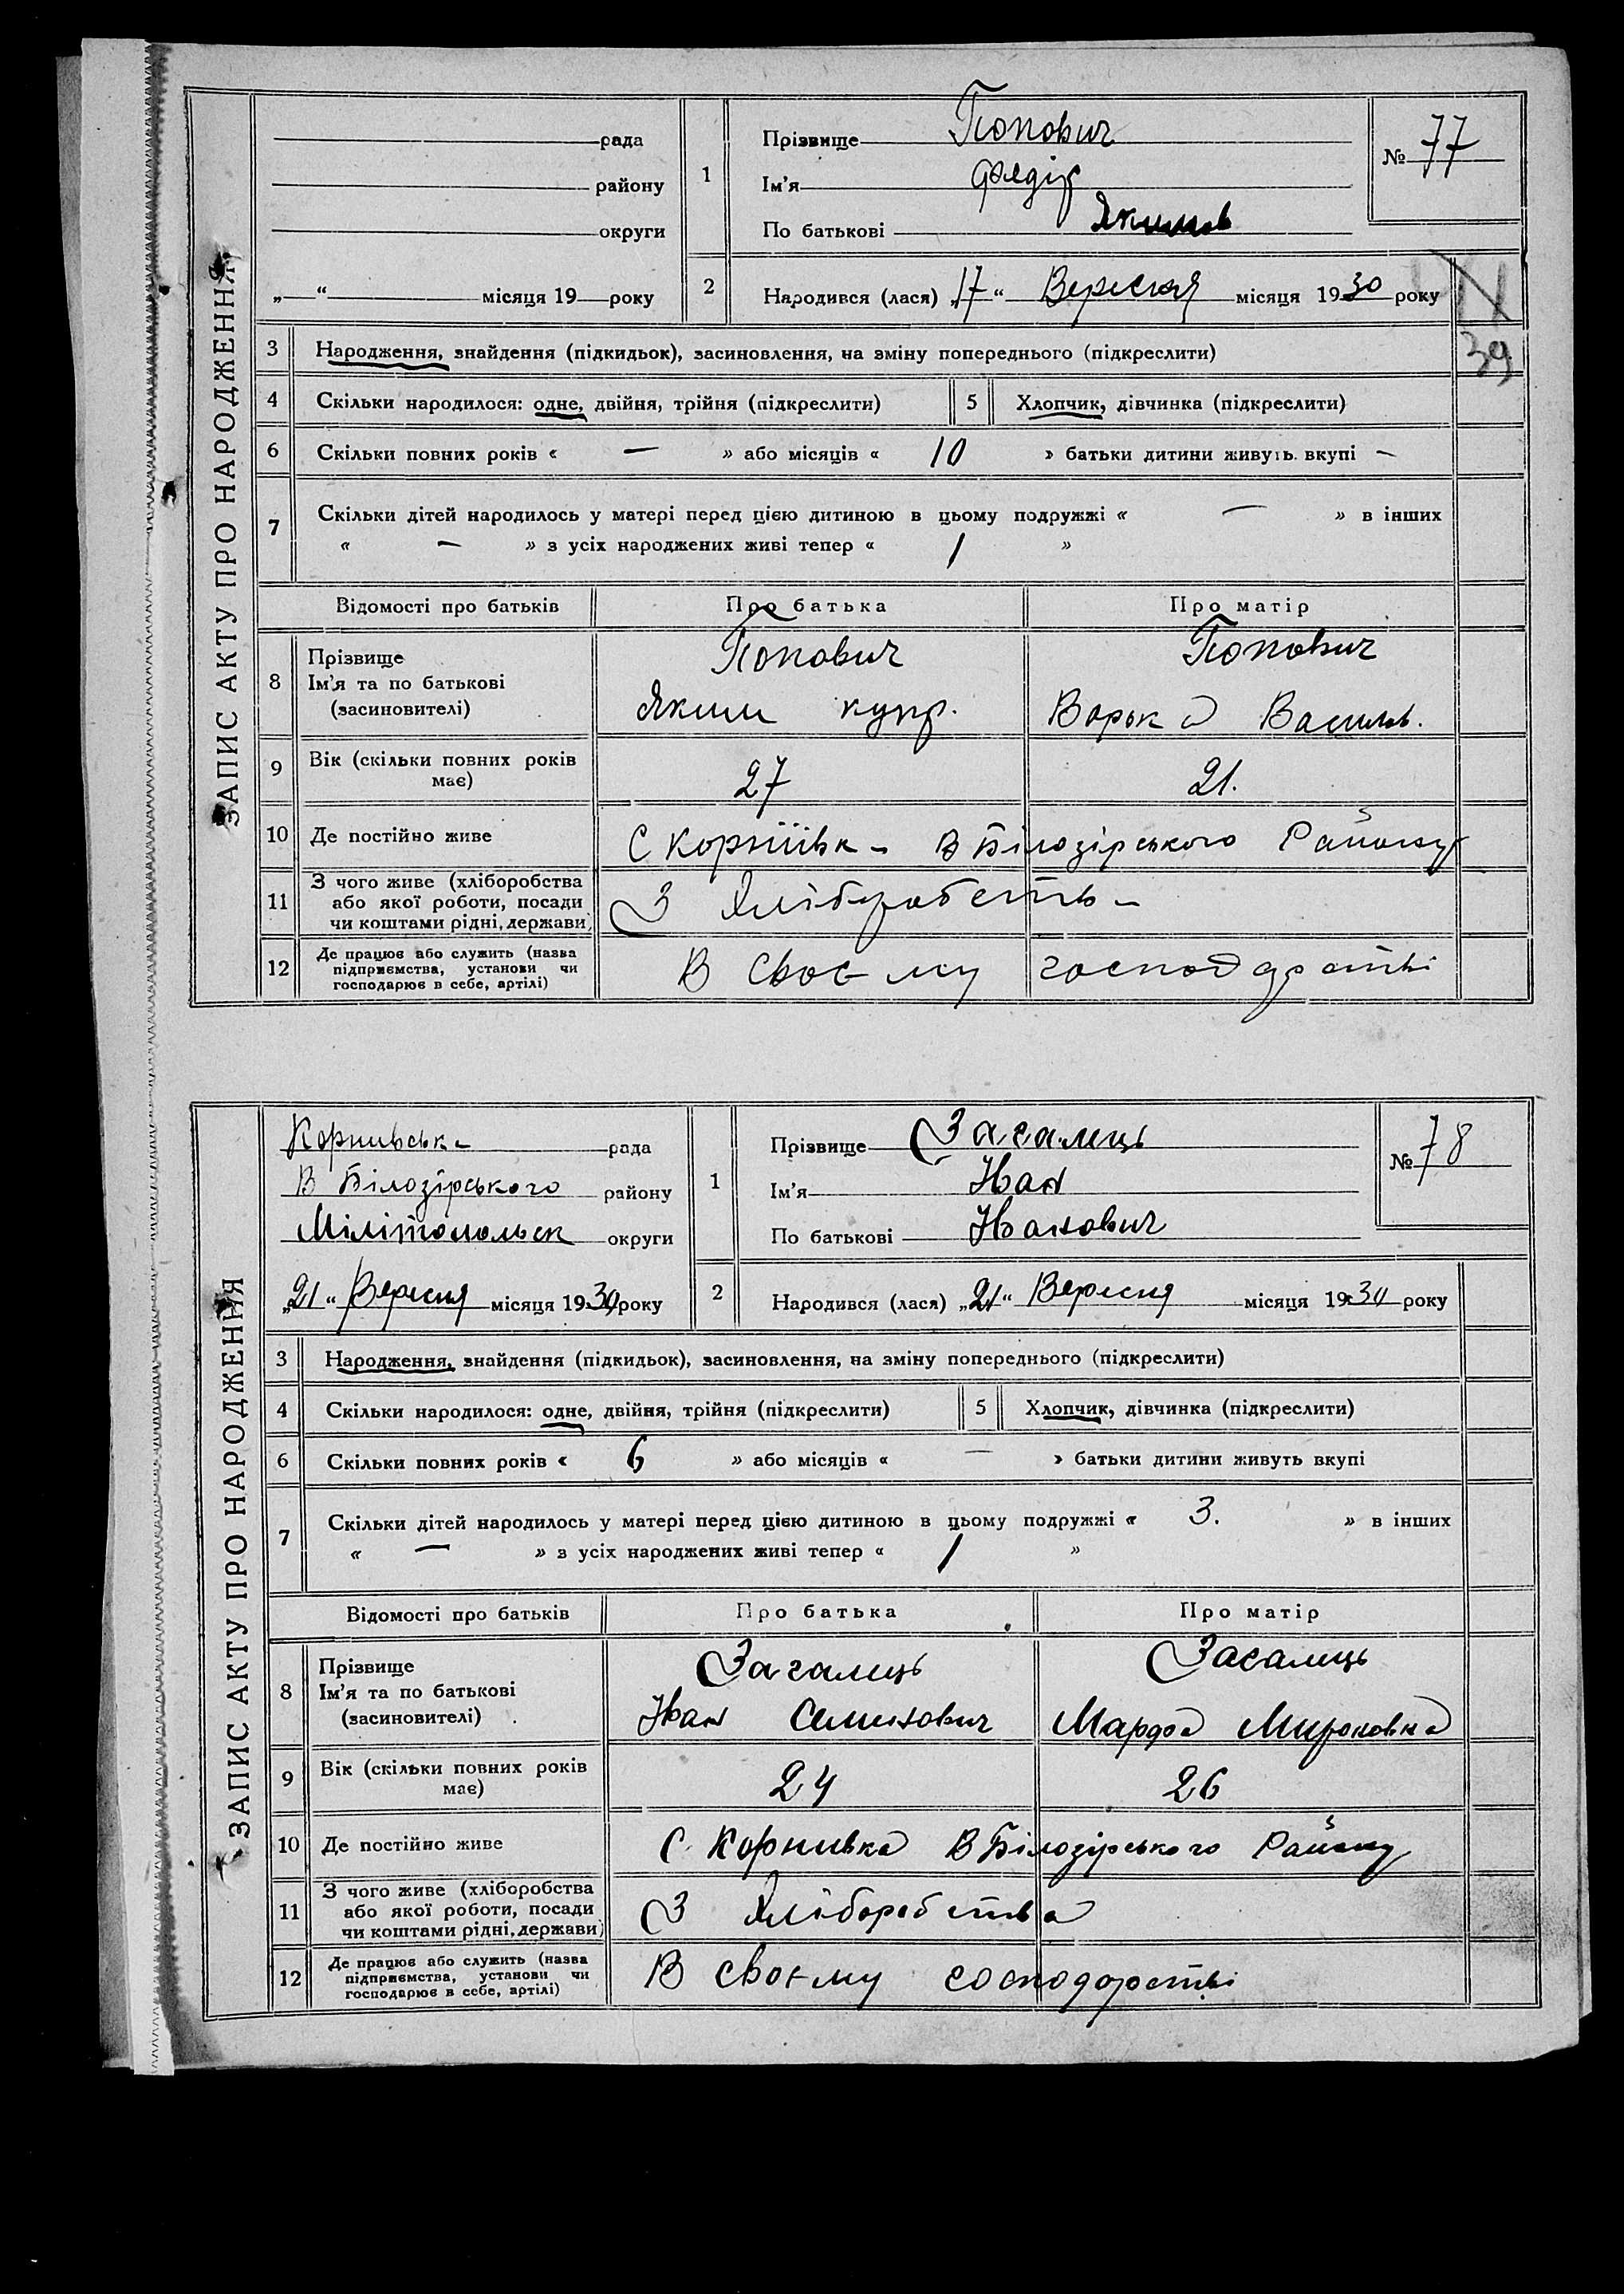 ЗАПИС АКТУ ПРО НАРОДЖЕННЯ
рада
району
округи
„ “ місяця 19 року
1 Прізвище Попович
Ім'я Федір
По батькові Якимов
№ 77
2 Народився (лася) „17“ Вересня місяця 1930 року
3 Народження, знайдення (підкидьок), засиновлення, на зміну попереднього (підкреслити)
39
4 Скільки народилося: одне, двійня, трійня (підкреслити) 5 Хлопчик, дівчинка (підкреслити)
6 Скільки повних років « — » або місяців « 10 » батьки дитини живуть вкупі —
7 Скільки дітей народилось у матері перед цією дитиною в цьому подружжі « — » в інших
« — » з усіх народжених живі тепер « 1 »
Відомості про батьків Про батька Про матір
8 Прізвище Попович Попович
Ім'я та по батькові
(засиновителі) Яким купр. Варька Василів.
9 Вік (скільки повних років
має) 27 21.
10 Де постійно живе С Корніївк- В Білозірського Району
11 З чого живе (хліборобства
або якої роботи, посади
чи коштами рідні, держави) З Хліборобств-
12 Де працює або служить (назва
підприємства, установи чи
господарює в себе, артілі) В своєму господарстві
ЗАПИС АКТУ ПРО НАРОДЖЕННЯ
Корнивська рада
В Білозірського району
Мілітопольск округи
„21“ Вересня місяця 1930 року
1 Прізвище Загалець
Ім'я Иван
По батькові Иванович
№ 78
2 Народився (лася) „21“ Вересня місяця 1930 року
3 Народження, знайдення (підкидьок), засиновлення, на зміну попереднього (підкреслити)
4 Скільки народилося: одне, двійня, трійня (підкреслити) 5 Хлопчик, дівчинка (підкреслити)
6 Скільки повних років « 6 » або місяців « — » батьки дитини живуть вкупі
7 Скільки дітей народилось у матері перед цією дитиною в цьому подружжі « 3. » в інших
« — » з усіх народжених живі тепер « 1 »
Відомості про батьків Про батька Про матір
8 Прізвище Загалець Загалець
Ім'я та по батькові
(засиновителі) Иван Семенович Марфа Мироновна
9 Вік (скільки повних років
має) 24 26
10 Де постійно живе С. Корнивка В Білозірського Району
11 З чого живе (хліборобства
або якої роботи, посади
чи коштами рідні, держави) З Хліборобства
12 Де працює або служить (назва
підприємства, установи чи
господарює в себе, артілі) В своєму господарстві